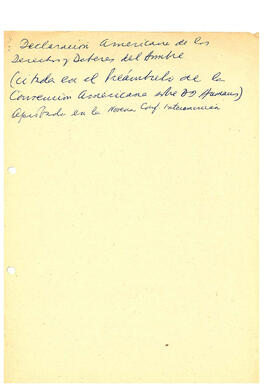 Declaración Americana de los
Derechos y Deberes del Hombre
(citada en el Preámbulo de la
Convención Americana sobre DD Humanos)
Aprobada en la Novena Conf. Interamericana